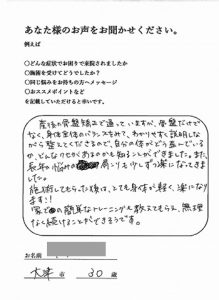 あなた様のお声をお聞かせください。
例えば
〇どんな症状でお困りで来院されましたか
〇施術を受けてどうでしたか？
〇同じ悩みをお持ちの方へメッセージ
〇おススメポイントなど
を記載していただけると幸いです。
産後の骨盤矯正で通っていますが、骨盤だけで
なく、身体全体のバランスをみて、わかりやすく説明しな
がら整えてくださるので、自分の体がどう歪んでいる
か、どんなクセがあるかも知ることができました。また、
長年の悩みの 肩こりも少しずつ楽になってきま
した。
施術してもらった後は、とても身体が軽く、楽になり
ます!!
家での簡単なトレーニングも教えてもらえ、無理
なく続けることができそうです。
お名前
大津 市 30 歳